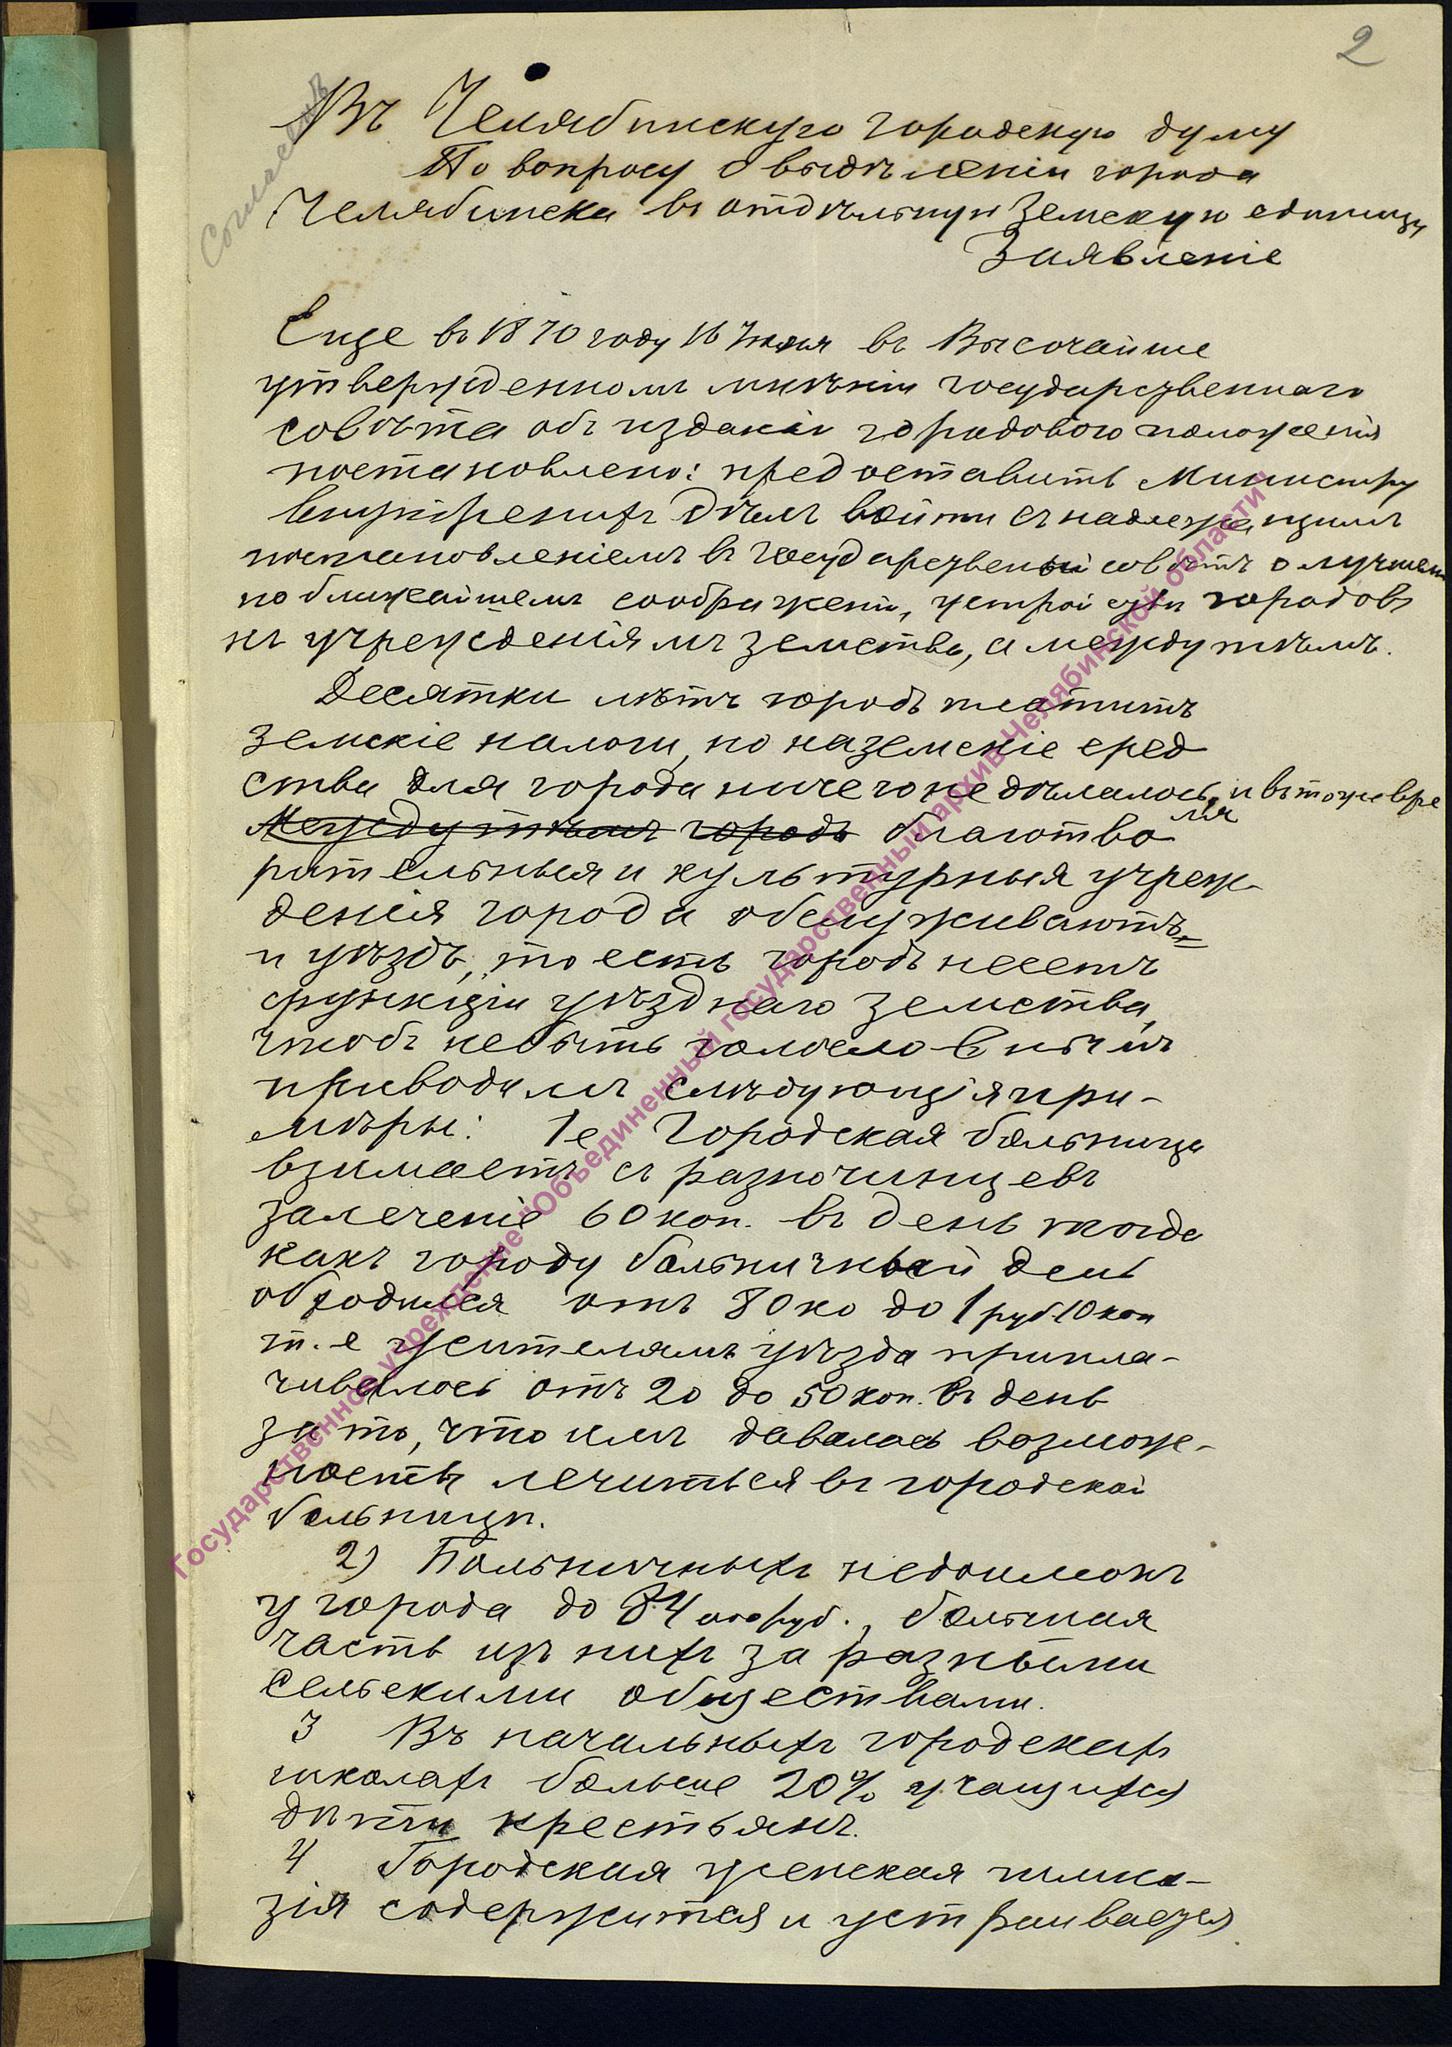 2
Согласенъ
Въ Челябинскую городскую думу
По вопросу о выдѣленіи города
Челябинска въ отдѣльную Земскую единицу
Заявленіе
Еще въ 1870 году 16 Іюня въ Высочайше
утвержденномъ мнѣніи государственнаго
совѣта объ изданіи городового положенія
постановлено: предоставить Министру
внутреннихъ дѣлъ войти съ надлежащимъ
постановленіемъ въ государственный совѣтъ о лучшемъ
по ближайшемъ соображеніи, устройству городовъ
къ учрежденіямъ земства, а между тѣмъ.
Десятки лѣтъ городъ платитъ
земскіе налоги, но на земскіе сред
ства для города ничего не дѣлалось, и въ тоже вре
мя
Между тѣмъ городъ благотво
рительныя и культурныя учреж-
денія города обслуживаютъ
и уѣздъ, то есть городъ несетъ
функціи уѣзднаго земства,
чтобъ не быть голословнымъ
приводимъ слѣдующія при-
мѣры: 1е Городская больница
взимаетъ съ разночинцевъ
за леченіе 60 коп. въ день тогда
какъ городу больничный день
обходился отъ 80 ко до 1 руб. 10 коп
т. е жителямъ уѣзда припла-
чивалось отъ 20 до 50 коп. въ день
за то, что имъ давалась возмож-
ность лечиться въ городской
больницѣ.
2) Больничныхъ недоимокъ
у города до 84 руб., большая
часть изъ нихъ за разными
сельскими обществами.
3 Въ начальныхъ городскихъ
школахъ больше 20% учащихся
дѣти крестьянъ.
4 Городская женская гимна-
зія содержится и устраивается
Государственное учреждение "Объединенный государственный архив Челябинской области"